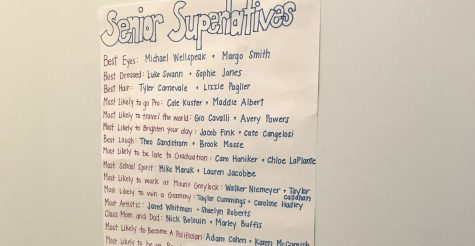 Senior Superlatives
Best Eyes: Michael Wellspeak + Margo Smith
Best Dressed: Luke Swann + Sophie Jones
Best Hair: Tyler Carnevale + Lizzie Paglier
Most Likely to go Pro: Cole Kuster + Maddie Albert
Most Likely to travel the world: Gio Cavalli + Avery Powers
Most Likely to Brighten your day: Jacob Fink + Cate Cangelosi
Best Laugh: Theo Sandstrom + Brook Maase
Most Likely to be late to Graduation: Cam Haniker + Chloe LaPlante
Most School Spirit: Mike Maruk + Lauren Jacobbe
Most Likely to work at Mount Greylock: Walker Niemeyer + Taylor Callahan
Most Likely to win a Grammy: Taylor Cummings + Caroline Hadley
Most Artistic: Jared Whitman + Shaelyn Roberts
Class Mom and Dad: Nick Belouin + Marley Buffis
Most Likely to Become A Politician: Adam Cohen + Karen McComish
Most Likely to be